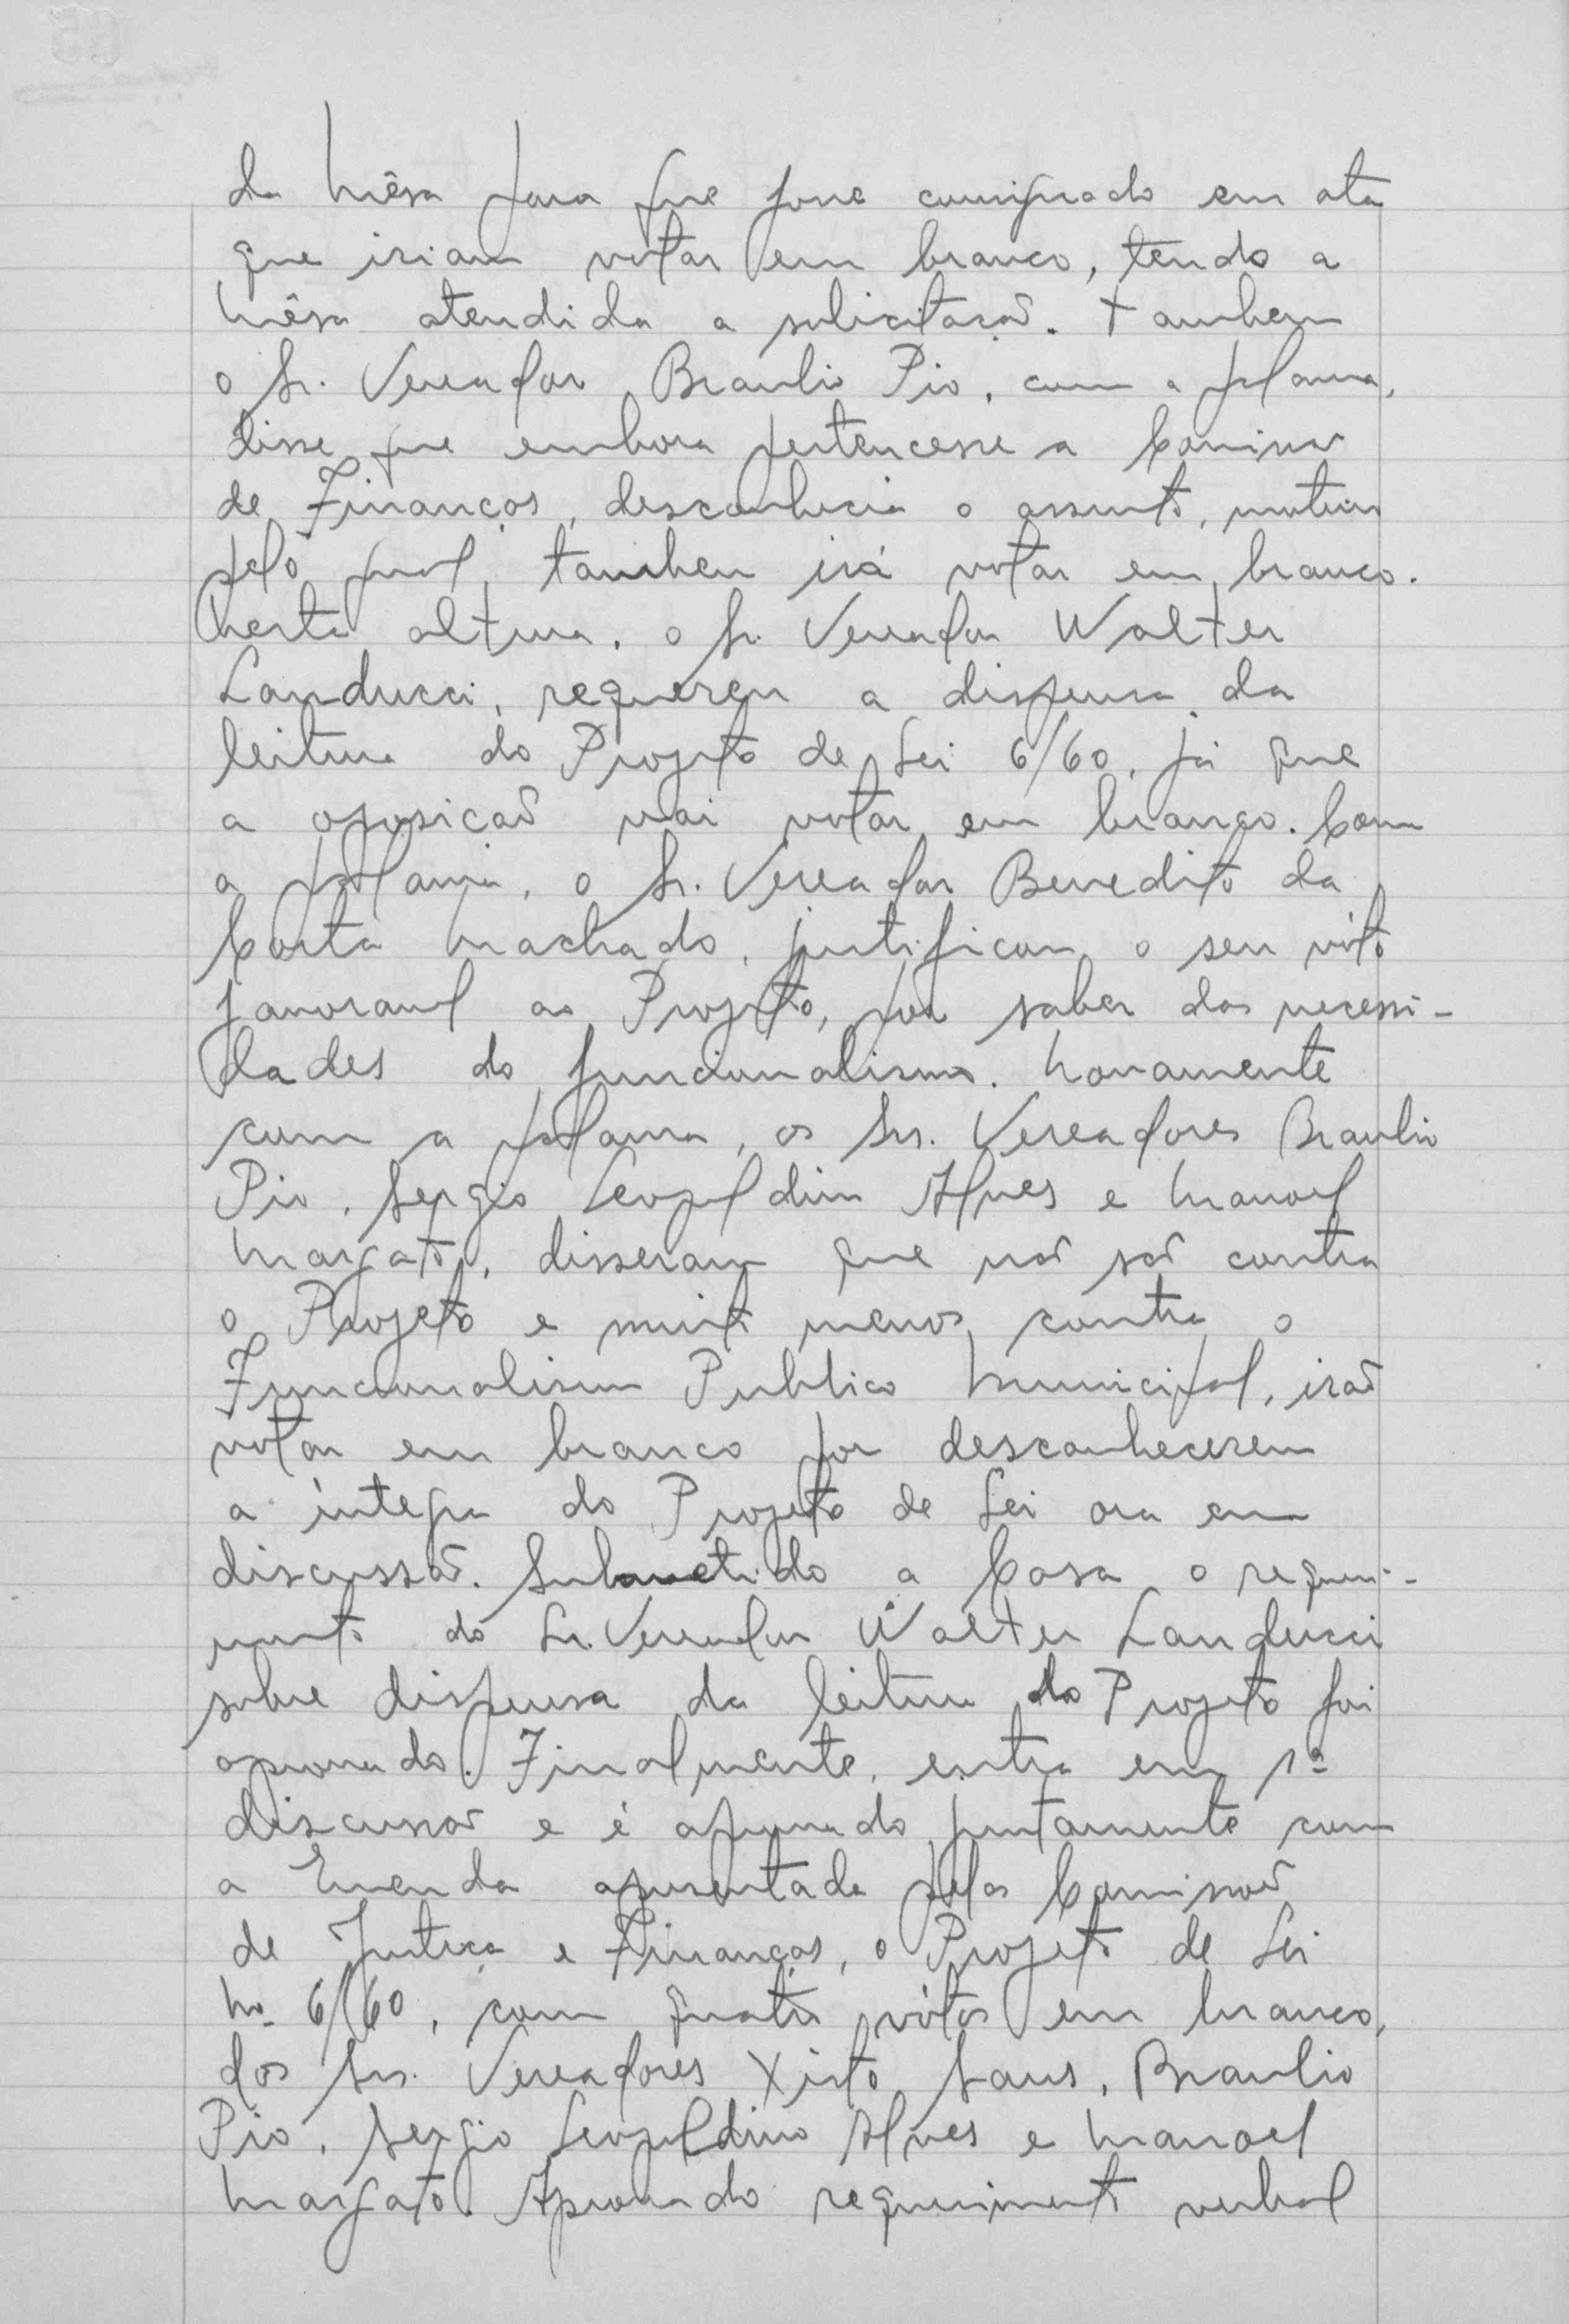 da Mêsa para que fosse consignado em ata
que iriam votar em branco, tendo a
Mêsa atendida a solicitação. Tambem
o Sr. Vereador Braulio Pio, com a palavra,
disse que embora pertencesse a Comissão
de Finanças, desconhecia o assunto, motivo
pelo qual, tambem irá votar em branco.
Nesta altura, o Sr. Vereador Walter
Landucci, requereu a dispensa da
leitura do Projeto de Lei 6/60, já que
a oposição vai votar em branco. Com
a palavra, o Sr. Vereador Benedito da
Costa Machado, justificou o seu vóto
favoravel ao Projeto, por saber das necessi-
dades do funcionalismo. Novamente
com a palavra, os Srs. Vereadores Braulio
Pio, Sergio Leopoldino Alves e Manoel
Margato, disseram que não são contra
o Projeto e muito menos contra o
Funcionalismo Publico Municipal, irão
votar em branco por desconhecerem
a íntegra do Projeto de Lei ora em
discussão. Submetido a Casa o requeri-
mento do Sr. Vereador Walter Landucci
sobre dispensa da leitura do Projeto foi
aprovado. Finalmente, entra em 1ª
discussão e é aprovado juntamente com
a Emenda apresentada pelas Comissão
de Justiça e Finanças, o Projeto de Lei
Nº 6/60, com quatro vótos em branco,
dos Srs. Vereadores Xisto Sans, Braulio
Pio, Sergio Leopoldino Alves e Manoel
Margato. Aprovado requerimento verbal